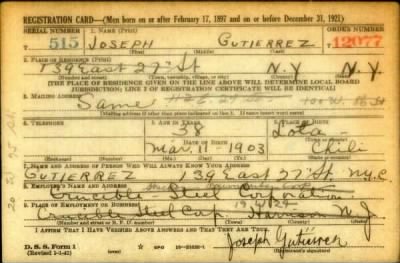 REGISTRATION CARD—(Men born on or after February 17, 1897 and on or before December 31, 1921)
SERIAL NUMBER 1. NAME (Print) ORDER NUMBER
515 JOSEPH GUTIERREZ 12077
(First) (Middle) (Last)
2. PLACE OF RESIDENCE (Print)
139 East 27th St N.Y. N.Y.
(Number and street) (Town, township, village, or city) (County) (State)
[THE PLACE OF RESIDENCE GIVEN ON THE LINE ABOVE WILL DETERMINE LOCAL BOARD
JURISDICTION; LINE 2 OF REGISTRATION CERTIFICATE WILL BE IDENTICAL]
3. MAILING ADDRESS
Same
[Mailing address if other than place indicated on line 2. If same insert word same]
4. TELEPHONE 5. AGE IN YEARS 6. PLACE OF BIRTH
38 Lota
DATE OF BIRTH
Mar. 11 1903 Chili
(Exchange) (Number) (Mo.) (Day) (Yr.) (State or country)
7. NAME AND ADDRESS OF PERSON WHO WILL ALWAYS KNOW YOUR ADDRESS
GUTIERREZ 139 East 27th St. N.Y.C.
8. EMPLOYER'S NAME AND ADDRESS
Crucible Steel Corporation
9. PLACE OF EMPLOYMENT OR BUSINESS
Crucible Steel Corp. Harrison N.J.
(Number and street or R. F. D. number) (Town) (County) (State)
I AFFIRM THAT I HAVE VERIFIED ABOVE ANSWERS AND THAT THEY ARE TRUE.
D. S. S. Form 1
(Revised 1-1-42) GPO 16—21630-1
Joseph Gutierrez